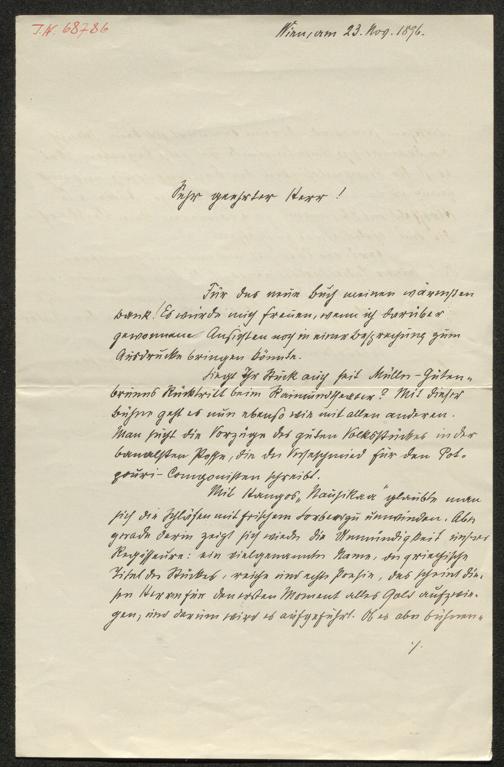 I.N. 68786
Wien, am 23. Nov. 1896.
Sehr geehrter Herr!
Für das neue Buch meinen wärmsten
Dank! Es würde mich freuen, wenn ich darüber
gewonnene Ansichten noch in einer Besprechung zum
Ausdrucke bringen könnte.
Liegt Ihr Stück auch seit Müller-Guten-
brunns Rücktritt beim Raimundtheater? Mit dieser
Bühne geht es nun ebenso wie mit allen anderen.
Man sucht die Vorzüge des guten Volksstückes in der
banalsten Posse, die der Possenschmied für den Pot-
pouri-Componisten schreibt.
Mit "Nausikaa" glaubte man
sich die Schläfen mit frischem Lorbeer zu umwinden. Aber
gerade darin zeigt sich wieder die Unmündigkeit unserer
Regisseure: ein vielgenannter Name, der griechische
Titel des Stückes, reiche und echte Poesie, das scheint die-
sen Herren für den ersten Moment alles Gold aufzuwie-
gen, und darum wird es aufgeführt. Ob es aber bühnen-
./.